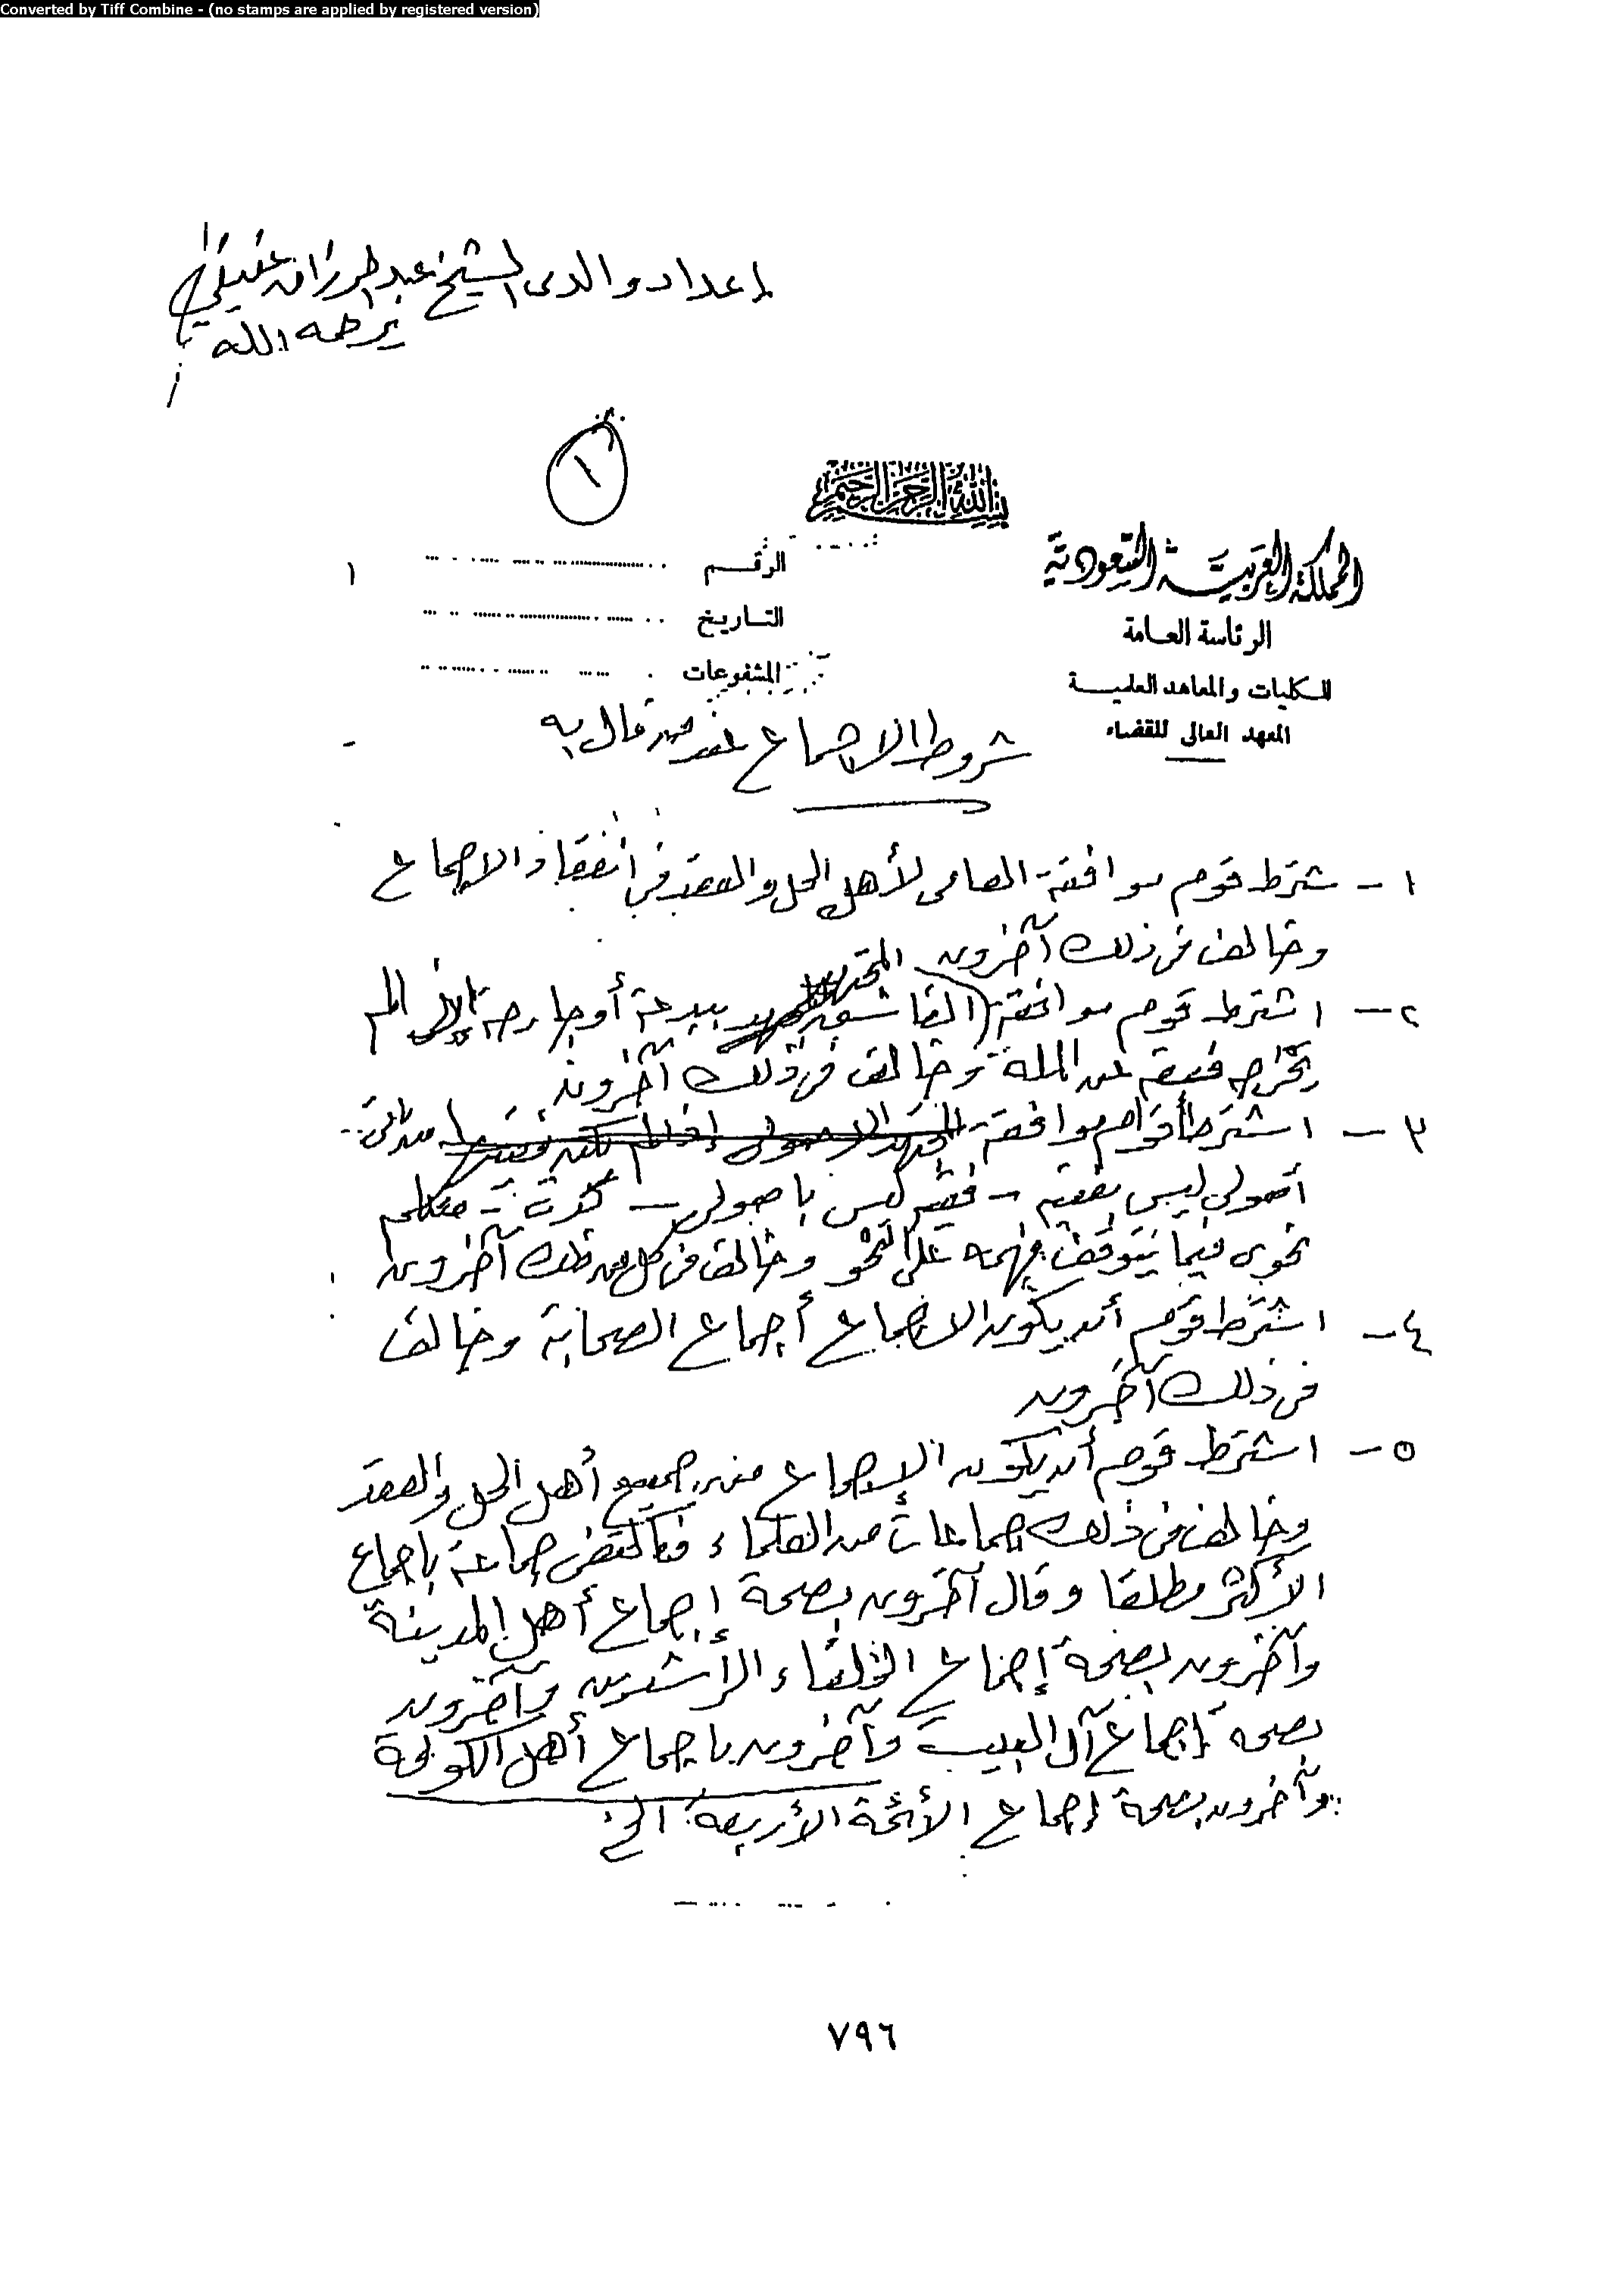 Converted by Tiff Combine - (no stamps are applied by registered version)
إعداد والدى الشيخ عبد الرزاق عفيفي
يرحمه الله
١
بسم الله الرحمن الرحيم
المملكة العربية السعودية
الرئاسة العامة
للكليات والمعاهد العلمية
المعهد العالى للقضاء
الرقم
١
التاريخ
المشفوعات
شروط الاجماع عند من قال به
١ - شترط قوم موافقة العامى لأهل الحل والعقد فى انعقاد الاجماع
وخالف فى ذلك آخرون
٢ - اشترط قوم موافقة الفاسق المجتهد ببدعة أو جارحة إذا لم
يخرج فسقه عن الملة وخالف فى ذلك آخرون
٣ - اشترط أقوام موافقة
أصولى ليس بفقيه - فقيه ليس بأصولى - محدث - متكلم
نحوى فيما يتوقف فهمه على النحو وخالف فى كل من ذلك آخرون
٤ - اشترط قوم أن يكون الاجماع أجماع الصحابة وخالف
فى ذلك آخرون
٥ - اشترط قوم أن يكون الإجماع من جميع أهل الحل والعقد
وخالف فى ذلك جماعات من العلماء فاكتفى جماعة باجماع
الأكثر مطلقا وقال آخرون بصحة إجماع أهل المدينة
وآخرون بصحة إجماع الخلفاء الراشدين وآخرون
بصحة إجماع آل البيت وآخرون باجماع أهل الكوفة
وآخرون بصحة إجماع الأئمة الأربعة الخ
٧٩٦